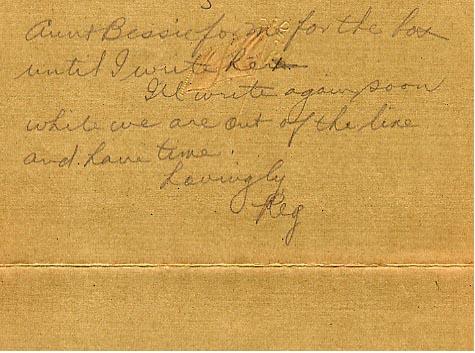 Aunt Bessie for me for the box
until I write her.
I'll write again soon
while we are out of the line
and have time.
Lovingly
Reg